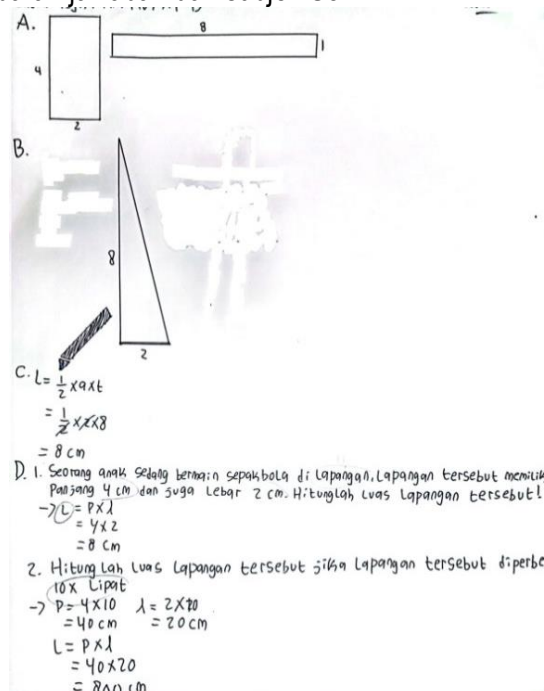 A.
8
1
4
2
B.
8
2
C. L = 1/2 x a x t
= 1/2 x 2 x 8
= 8 cm
D. 1. Seorang anak sedang bermain sepakbola di lapangan. Lapangan tersebut memilik
Panjang 4 cm dan juga Lebar 2 cm. Hitunglah luas lapangan tersebut!
-> L = P x l
= 4 x 2
= 8 cm
2. Hitunglah luas lapangan tersebut jika lapangan tersebut diperbe
10x Lipat
-> P = 4 x 10 l = 2 x 10
= 40 cm = 20 cm
L = P x l
= 40 x 20
= 800 cm